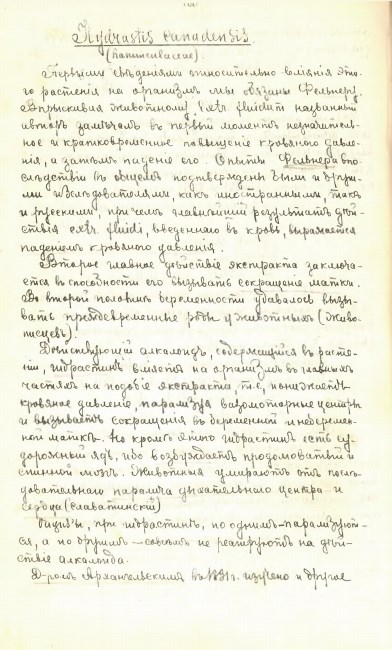 Hydrastis canadensis
(Ranunculaceae).
Первыми свѣдѣніями относительно вліянія это-
го растенія на организмъ мы обязаны Фельнеру.
Впрыскивая животному Extr. fluidum названный
авторъ замѣчалъ въ первый моментъ незначитель-
ное и кратковременное повышеніе кровяного давле-
нія, а затѣмъ паденіе его. Опыты Фельнера впо-
слѣдствіи въ общемъ подтверждены были и други-
ми изслѣдователями, какъ иностранными, такъ
и русскими, при чемъ главнѣйшій результатъ дѣй-
ствія extr. fluidi, введеннаго въ кровь, выражается
паденіемъ кровяного давленія.
Второе главное дѣйствіе экстракта заключа-
ется въ способности его вызывать сокращеніе матки.
Во второй половинѣ беременности удавалось вызы-
вать преждевременные роды у животныхъ (Живо-
писцевъ).
Дѣйствующій алкалоидъ, содержащійся въ расте-
ніи, гидрастинъ вліяетъ на организмъ въ главныхъ
частяхъ на подобіе экстракта, т.е. понижаетъ
кровяное давленіе, парализуя вазомоторные центры
и вызываетъ сокращенія въ беременной и неберемен-
ной маткѣ. Но кромѣ этого гидрастинъ есть су-
дорожный ядъ, ибо возбуждаетъ продолговатый и
спинной мозгъ. Животныя умираютъ отъ послѣ-
довательнаго паралича дыхательнаго центра и
сердца (Славатинскій)
при гидрастинѣ, по однимъ - парализуют-
ся, а по другимъ — совсѣмъ не реагируютъ на дѣй-
ствіе алкалоида.
Д-ромъ Архангельскимъ въ 1891 г. изучено и другое